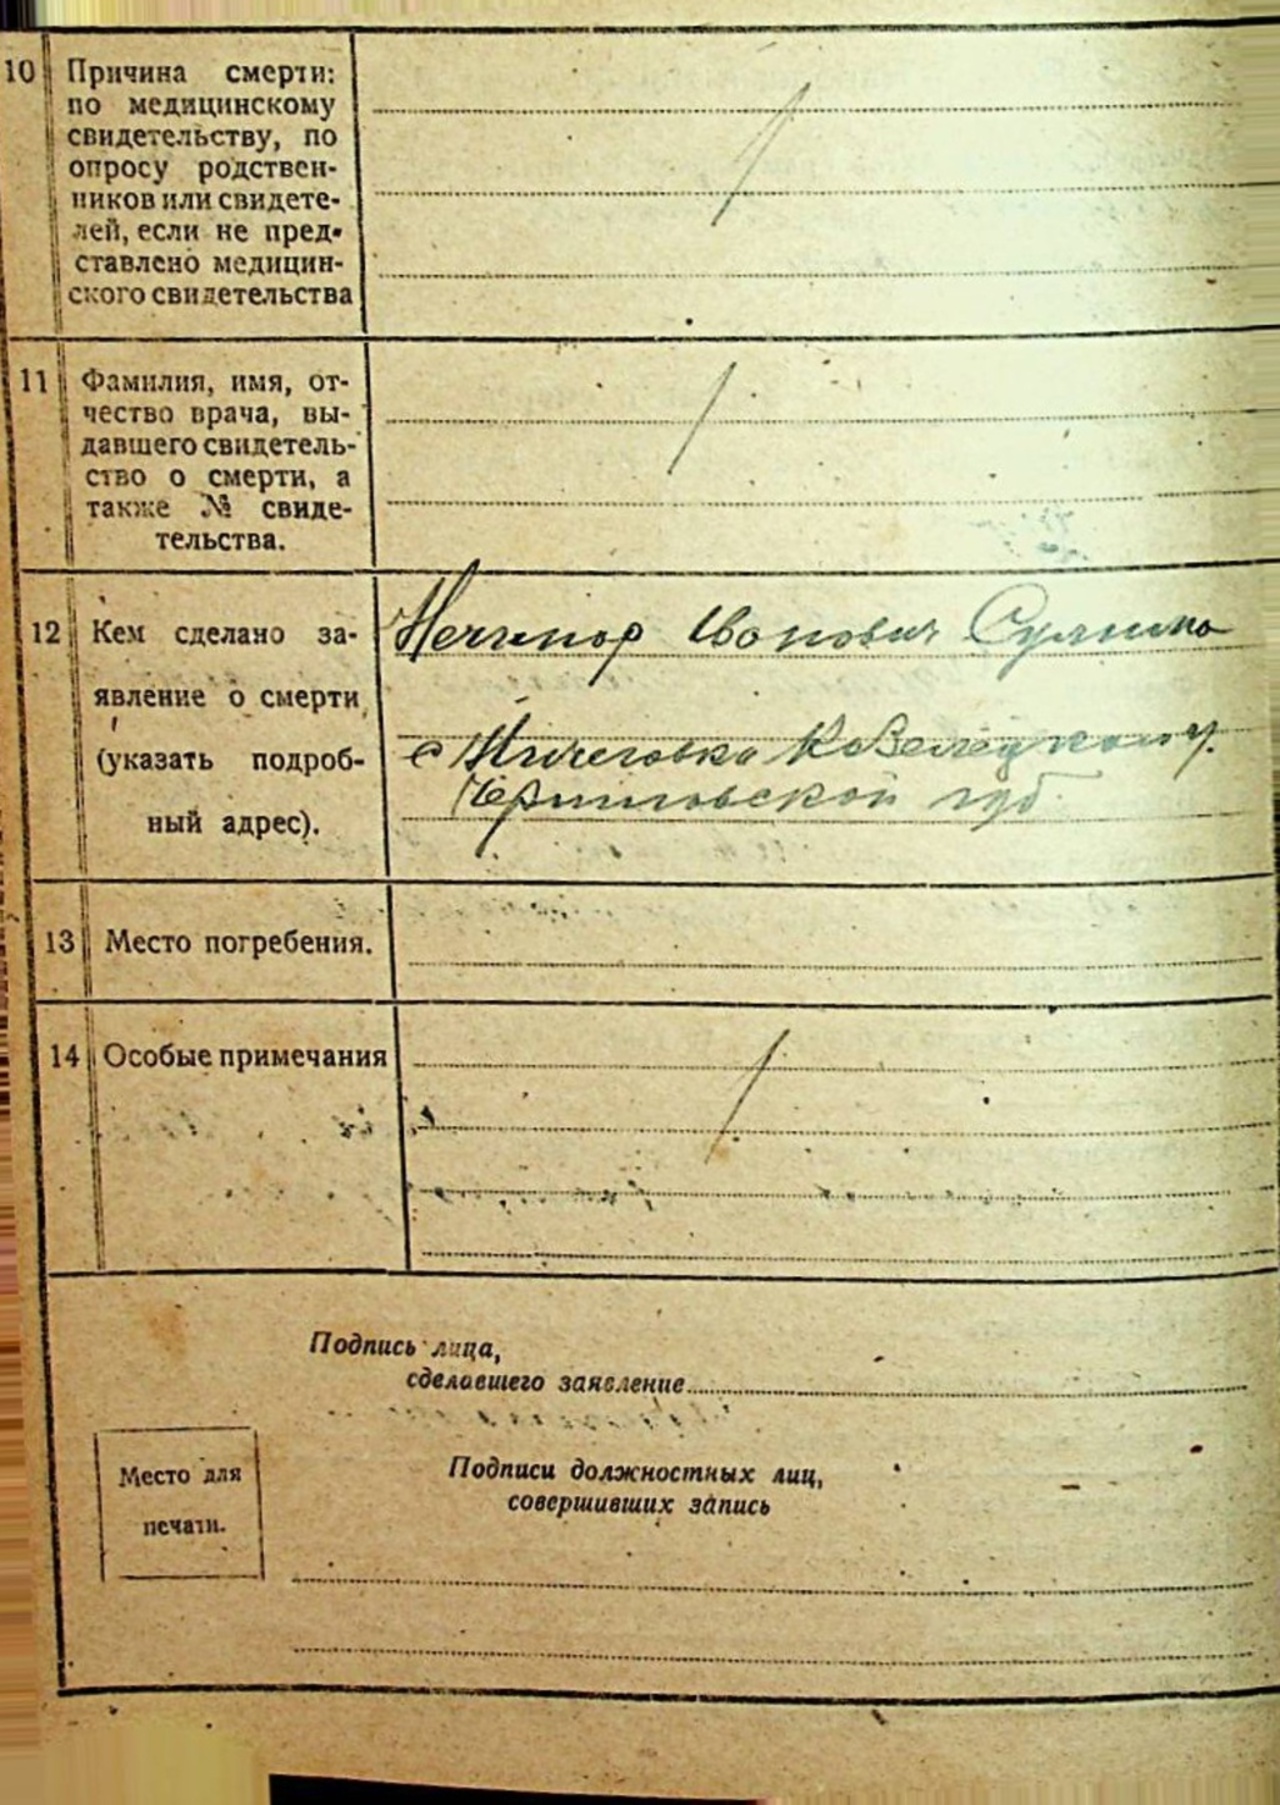 10 Причина смерти:
по медицинскому
свидетельству, по
опросу родствен-
ников или свидете-
лей, если не пред-
ставлено медицин-
ского свидетельства
11 Фамилия, имя, от-
чество врача, вы-
давшего свидетель-
ство о смерти, а
также № свиде-
тельства.
12 Кем сделано за-
явление о смерти
(указать подроб-
ный адрес).
Нечипор Иванович
с
Черниговской губ
13 Место погребения.
14 Особые примечания
Подпись лица,
сделавшего заявление
Место для
печати.
Подписи должностных лиц,
совершивших запись